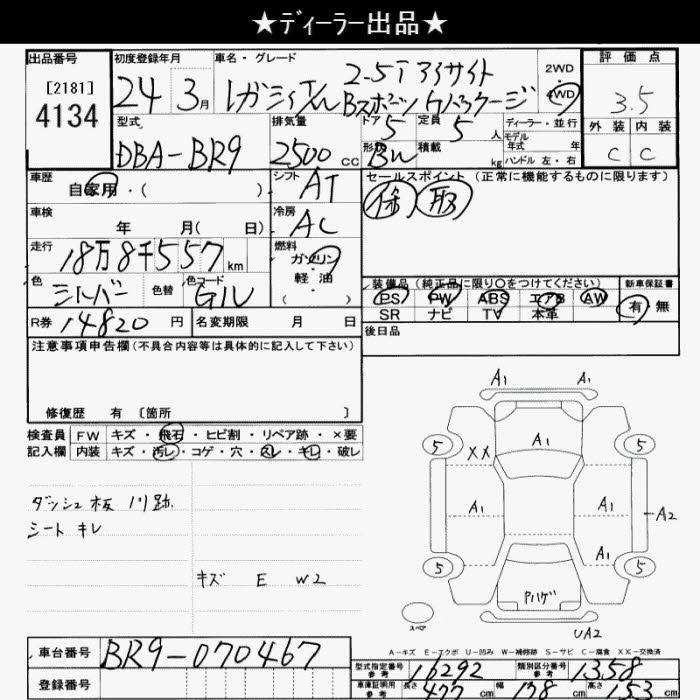 ★ディーラー出品★
出品番号
[2181]
4134
初度登録年月
24年3月
車名・グレード
2.5i アイサイト
レガシィ Bスポーツ Gパッケージ
2WD
4WD
評価点
3.5
外装 内装
C C
型式
DBA-BR9
排気量
2500 CC
ドア
5
定員
5人
形状
BW
積載
kg
ディーラー・並行
モデル
年式 年
ハンドル 左・右
車歴
自家用・( )
シフト
AT
セールスポイント(正常に機能するものに限ります)
保 取
車検
年 月( 日)
冷房
AC
走行
18万8千557km
燃料
ガソリン
軽・油
( )
色
シルバー
色替
色コード
G1U
装備品(純正品に限り〇をつけてください)
PS PW ABS エアB AW
SR ナビ TV 本革
新車保証書
有 無
R券 14820 円
名変期限 月 日
後日品
注意事項申告欄(不具合内容等は具体的に記入して下さい)
修復歴 有 〔箇所 〕
検査員
記入欄
FW キズ・飛石・ヒビ割・リペア跡・×要
内装 キズ・汚レ・コゲ・穴・スレ・キレ・破レ
ダッシュ板 ハリ跡
シート キレ
キズ E W2
A1 A1
5 XX A1 5
A1 A1 A2
A1
5 Pハゲ 5
スペア
UA2
A-キズ E-エクボ U-凹み W-補修跡 S-サビ C-腐食 XX-交換済
車台番号 BR9-070467
登録番号
型式指定番号
参考
16292
類別区分番号
参考
1358
車庫証明用
参考
長さ 477 cm 幅 178 cm 高さ 153 cm